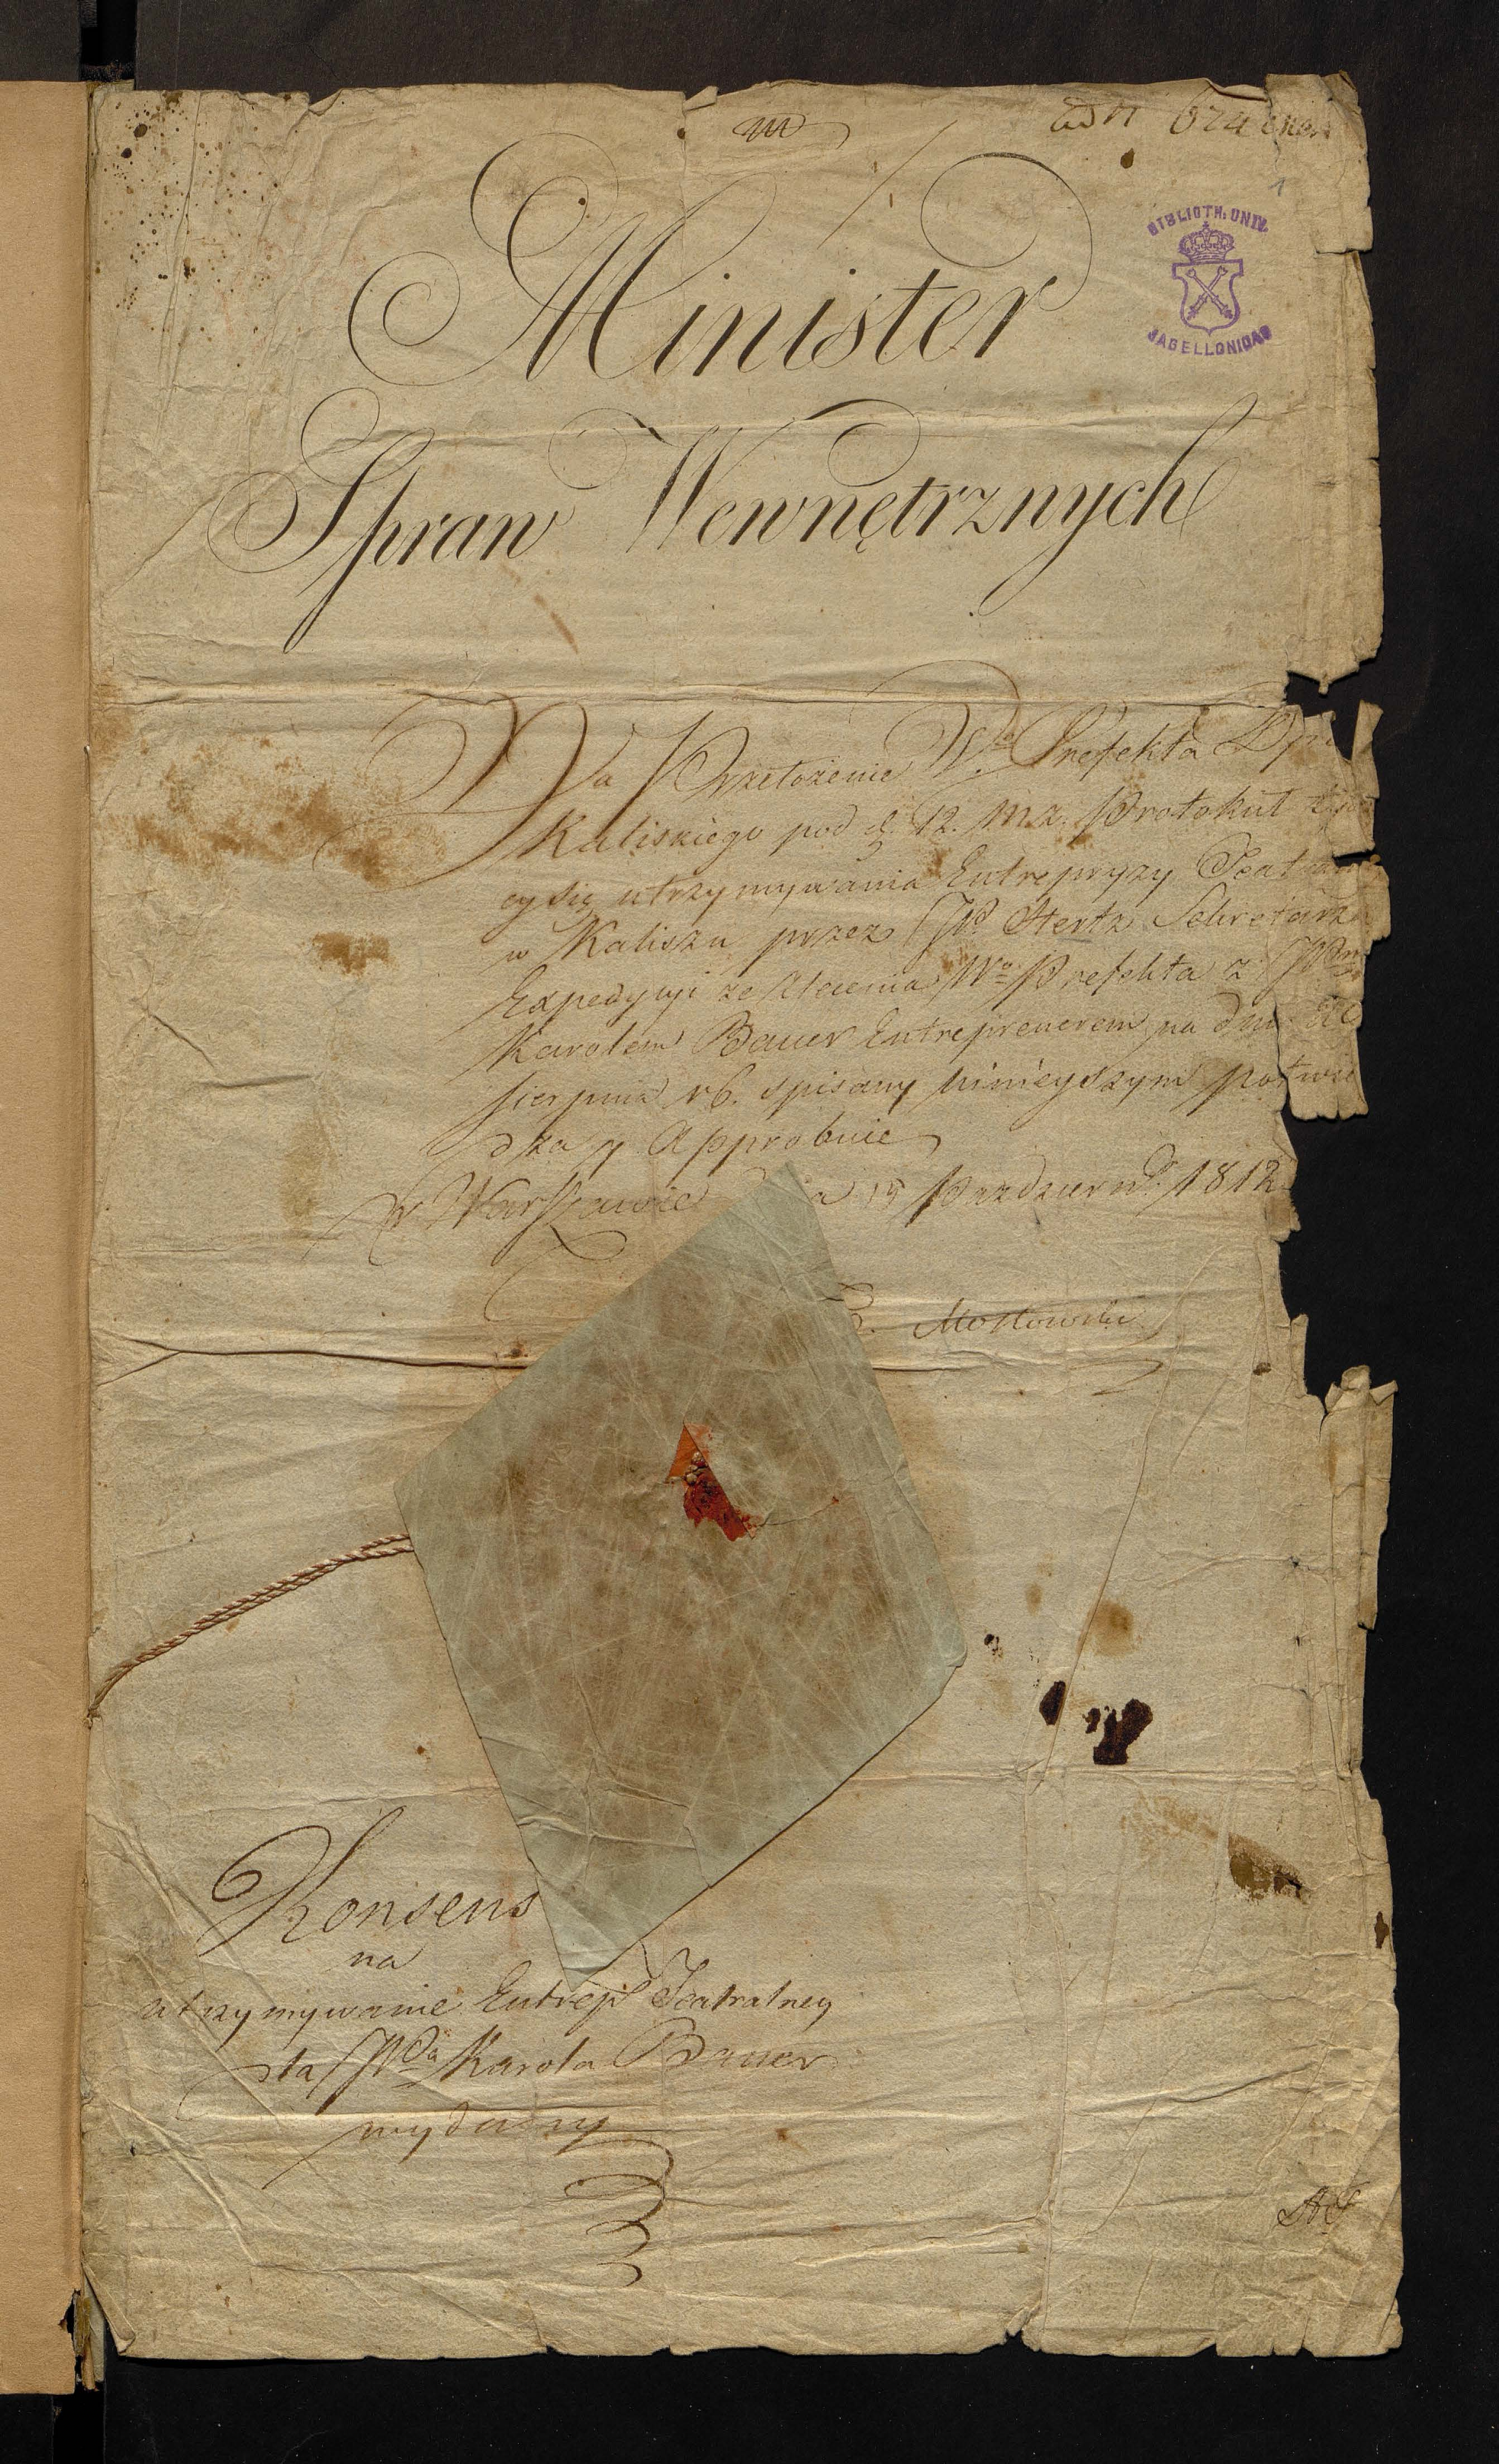 ad N 624
BIBLIOTH: UNIV.
JAGELLONICAE
Minister
Spraw Wewnętrznych
Na Przełożenie Wgo Prefekta Dp
Kaliskiego pod d. 12. m. z. Protokuł
cy się utrzymywania Entrepryzy Teat
w Kaliszu przez JPa Hertz Sekretarza
Expedycyi ze zlecenia Wo Prefekta z JPm
Karolem Bauer Entreprenerem na dniu 20
Sierpnia rb. spisany ninieyszym potwie
dza y Approbuie
w Warszawie 15 Października 1812
Mostowski
Konsens
na
utrzymywanie Entrep Teatralney
dla JPda Karola Bauer
wydany